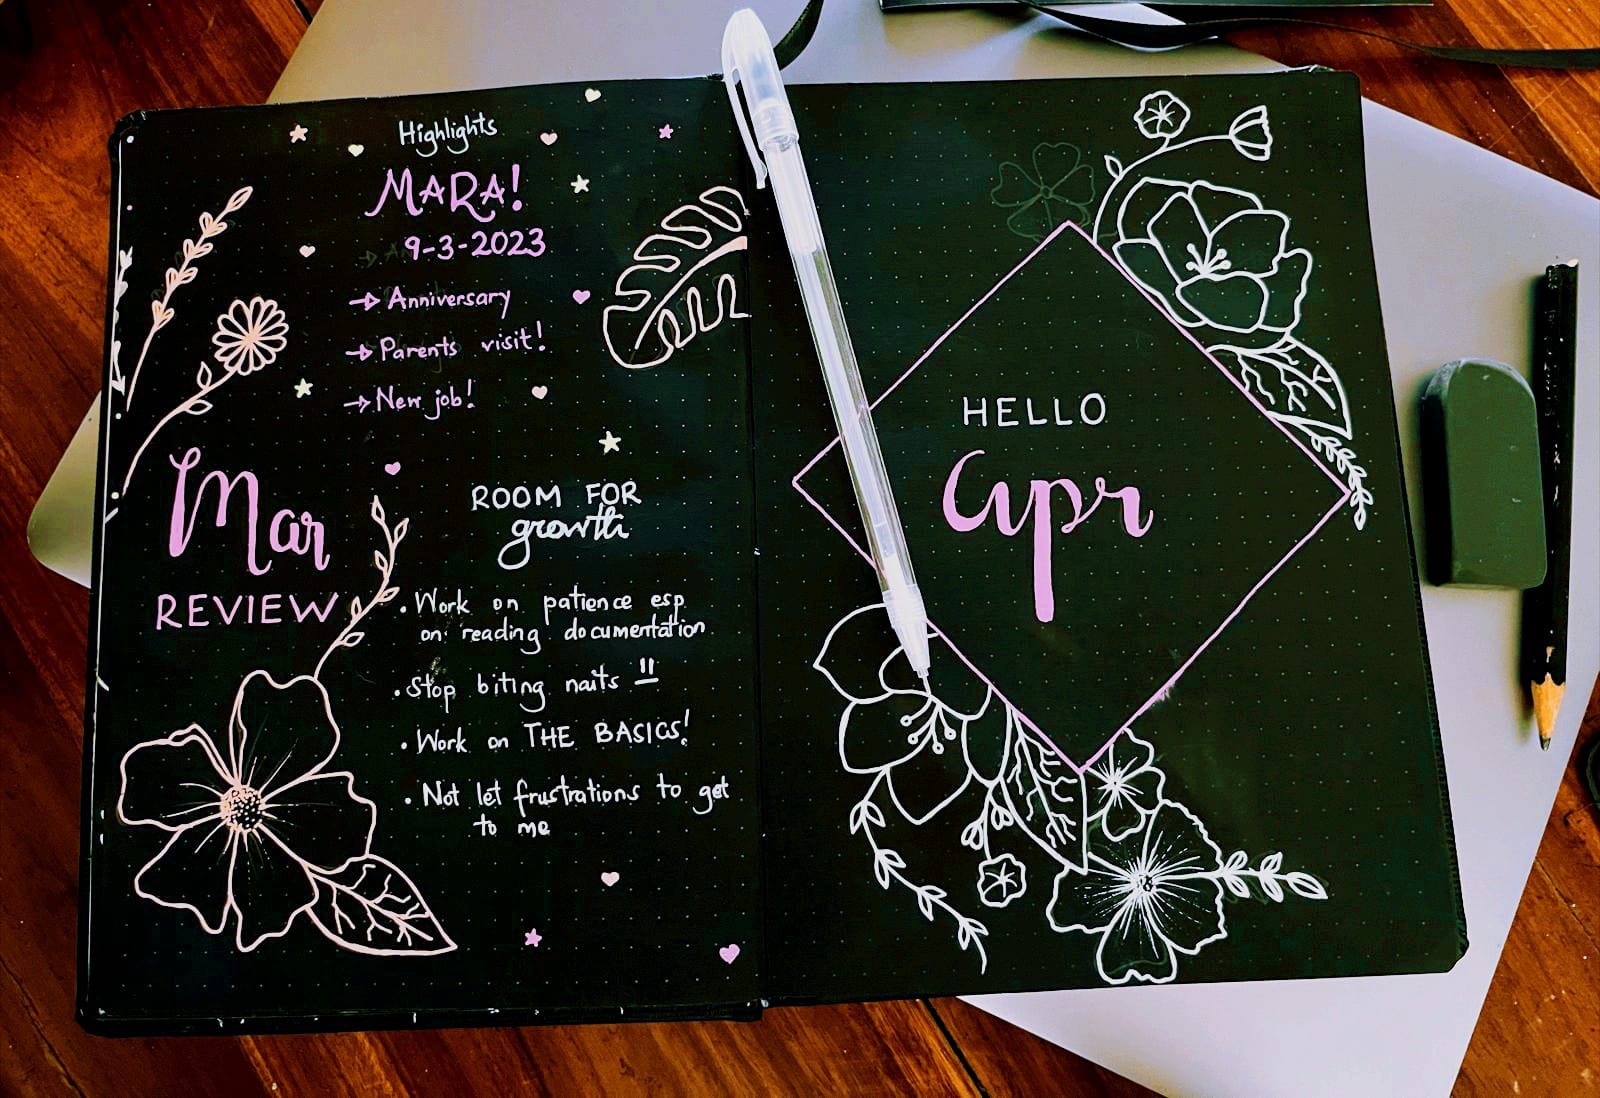 Highlights
MARA!
9-3-2023
→ Anniversary
→ Parents visit!
→ New job!
Mar
REVIEW
ROOM FOR
growth
• Work on patience esp.
on reading documentation
• Stop biting nails !!
• Work on THE BASICS!
• Not let frustrations to get
to me
HELLO
apr